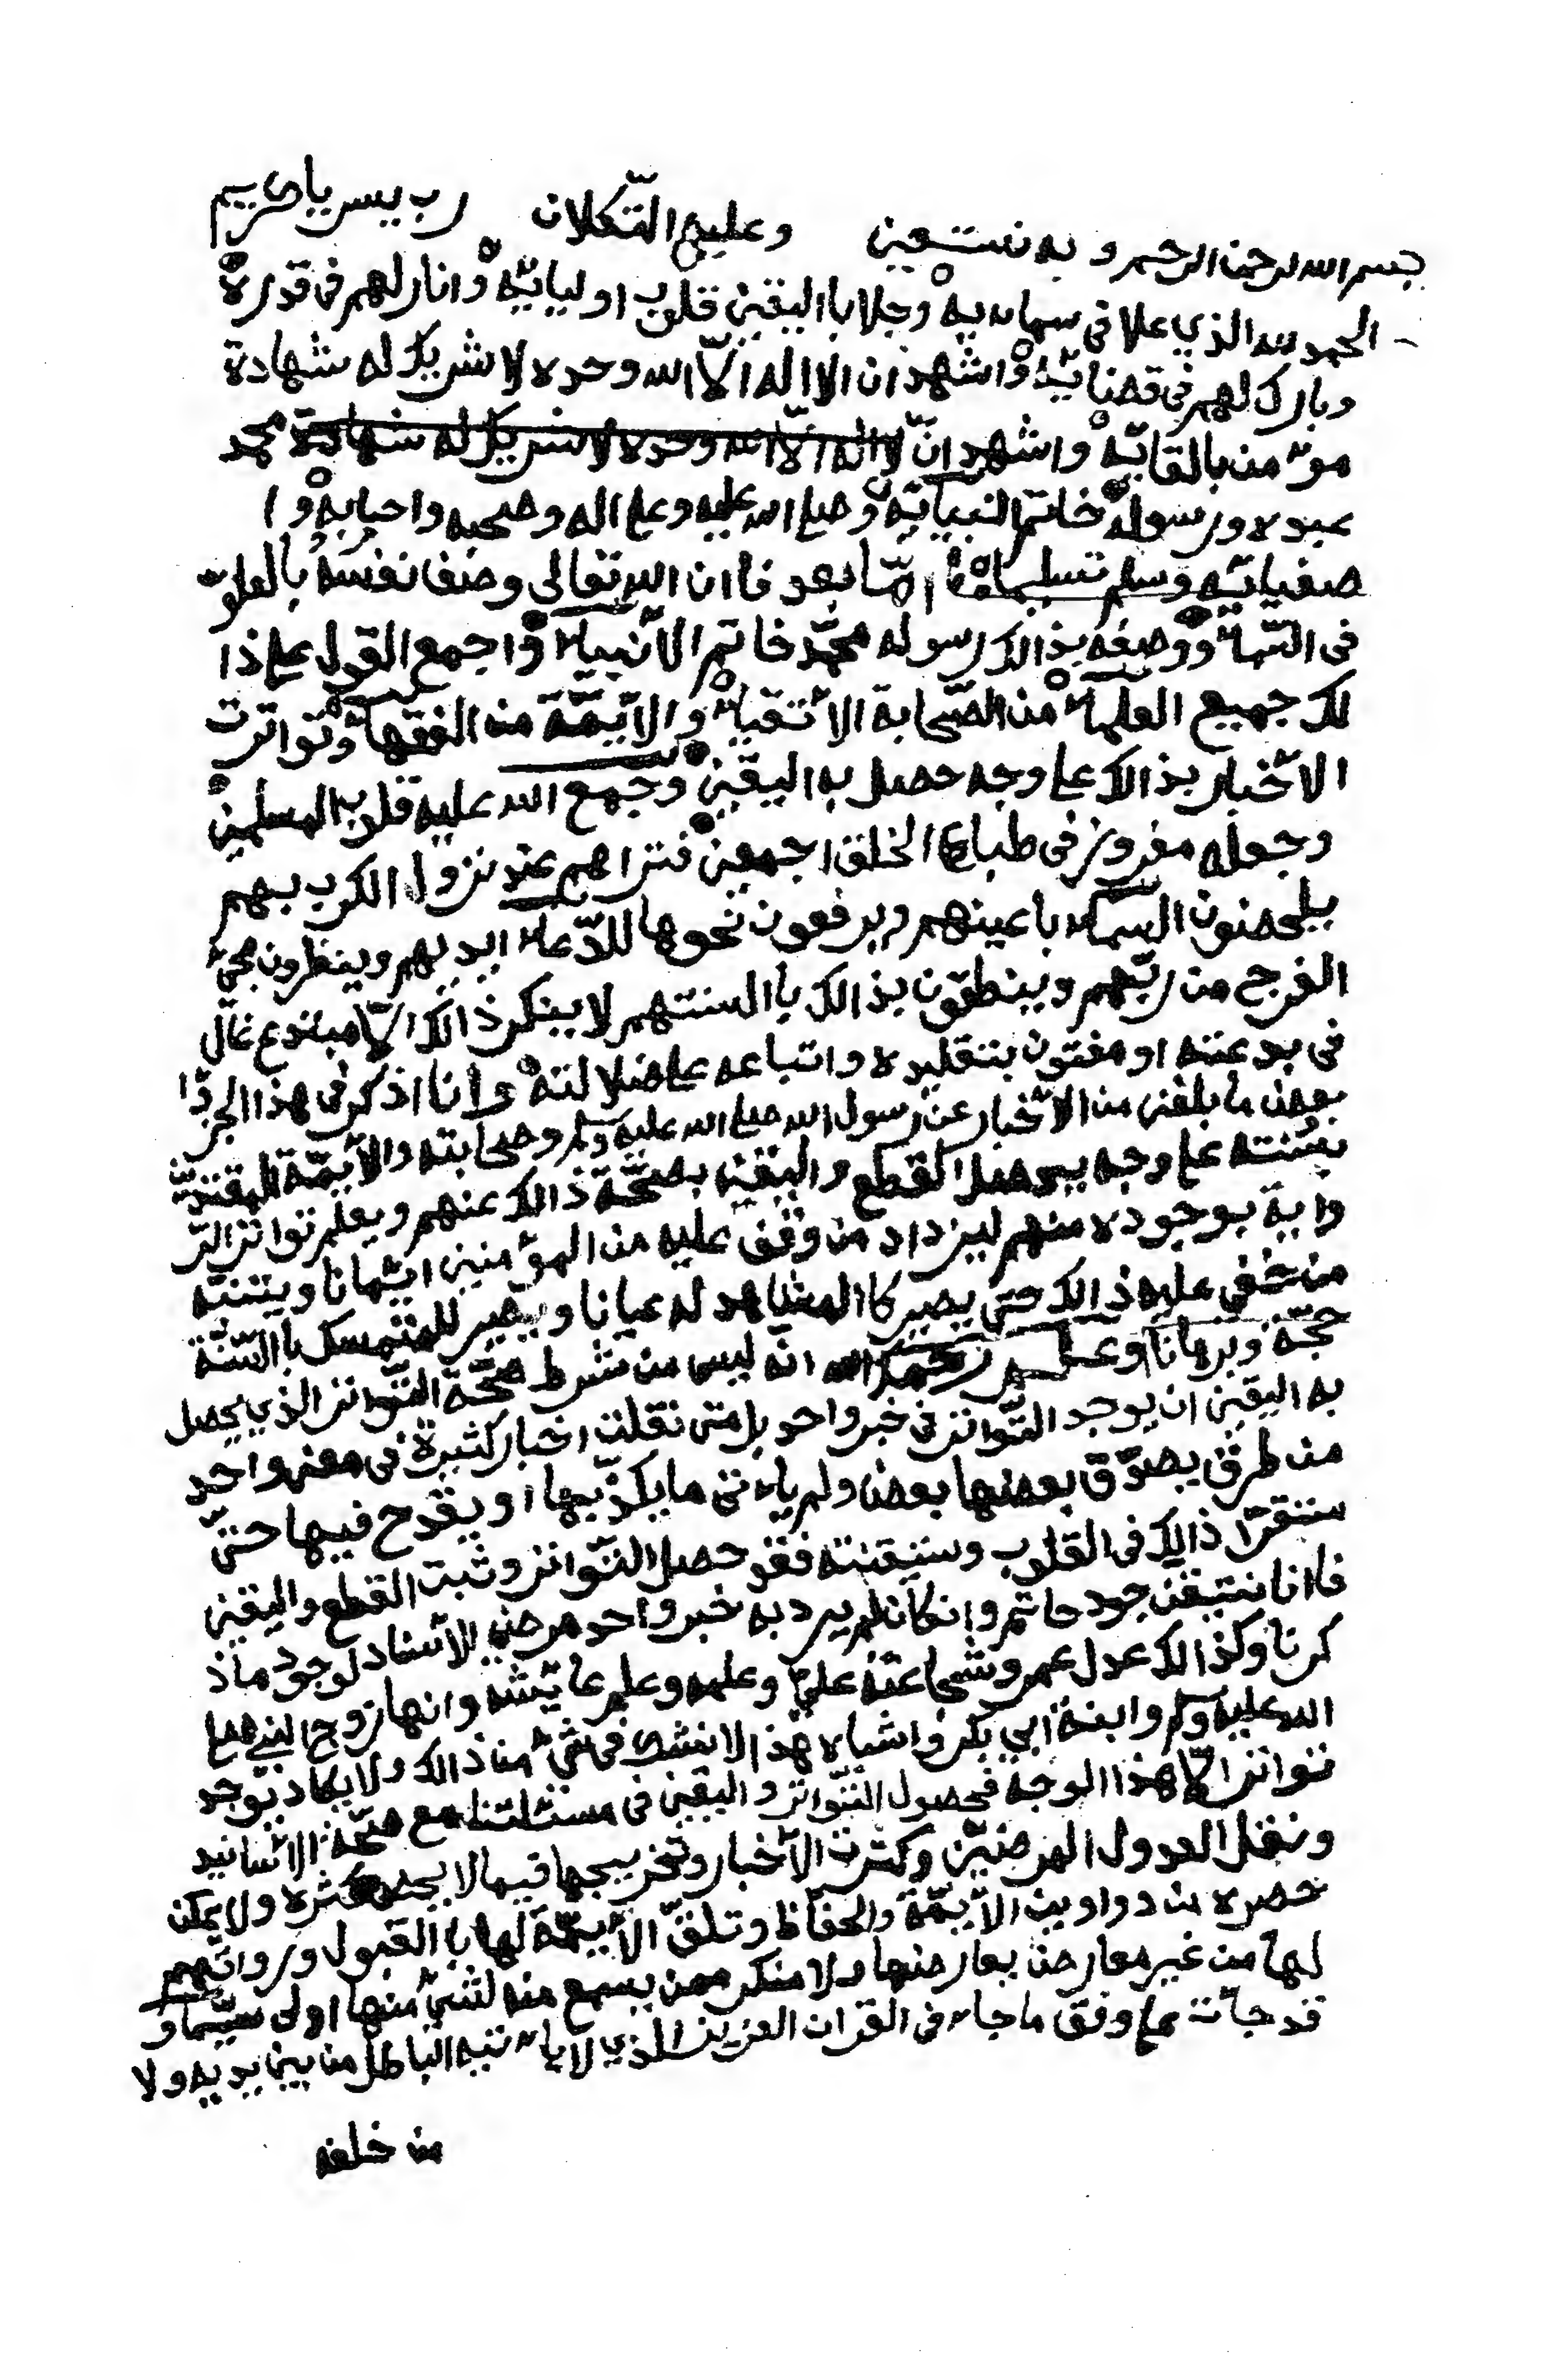 بسم الله الرحمن الرحيم وبه نستعين وعليه التّكلان رب يسر يا كريم
الحمد لله الذي علا في سمايه وجلا باليقين قلوب اوليايه وانار لهم في قدره
وبارك لهم في قضايه واشهد ان لا اله الّا الله وحده لا شريك له شهادة
مؤمن بالقايه واشهد انّ لا اله الّا الله وحده لا شريك له شهادة محمد
عبده ورسوله خاتم النبيايه وصلى الله عليه وعلى اله وصحبه واحبابه وا
صفيايه وسلم تسليما امّا بعد فاان الله تعالى وصف نفسه بالعلوّ
في السّماء ووصفه بذالك رسوله محمّد خاتم الأنبياء واجمع القول على ذا
لك جميع العلماء من الصّحابة الأتقياء والأيمّة من الفقهاء وتواترت
الأخبار بذالك على وجه حصل به اليقين وجمع الله عليه قلوب المسلمين
وجعله مغروز في طباع الخلق اجمعين فتراهم عند نزول الكرب بهم
يلحضون السماء باعينهم ويرفعون نحوها للدّعاء ايديهم وينظرون مجيء
الفرج من ربّهم وينطقون بذالك باالسنتهم لا ينكر ذالك الّا مبتدع غالّ
في بدعته او مفتون بتقليده واتباعه على ضلالته وانا اذكر في هذا الجزا
بعض ما بلغني من الأخبار عن رسول الله صلى الله عليه وسلم وصحابته والأيمّة المقتدين
بسنته على وجه يحصل القطع واليقين بصحّة ذالك عنهم ويعلم تواتر الر
واية بوجوده منهم ليزداد من وقف عليه من المؤمنين ايمانا ويتنبّه
من خفي عليه ذالك حتى يصير كاالمشاهد له عيانا ويصير للمتمسك باالسّنّة
حجّة وبرهانا واعلم رحمك الله انّه ليس من شرط صحّة التّواتر الذي يحصل
به اليقين ان يوجد التّواتر في خبر واحد بل متى نقلت اخبار كثيرة في معنى واحد
من طرق يصدّق بعضها بعض ولم ياءتي ما يكذّبها او يقدح فيها حتىّ
ستقرّا ذالك في القلوب وستيقنته فقد حصل التّواتر وثبت القطع واليقين
فاانا نتيقن جود حاتم وان كان لم يرد به خبر واحد مرضي الأسناد لوجود ماذ
كرنا وكذالك عدل عمر وشجاعة عليّ وعلمه وعلم عايشه وانها زوج النبي صلى
الله عليه وسلم وابنة ابي بكر واشباه هذا لا نشك في شيء من ذالك ولا يكاد يوجد
تواتر الّا هذا الوجه فحصول التّواتر واليقين في مسئلتنا مع صحّة الأسانيد
ونقل العدول المرضيّين وكثرت الأخبار وتخريجها فيما لا يحصى كثره ولا يمكن
حصره من دواوين الأيمّة والحفّاظ وتلقّ الأيمّة لها باالقبول وروايتهم
لها من غير معارض يعارضها ولا منكر ممن يسمع منه لشيء منها اولى سيّما و
قد جاءت على وفق ما جاء في القران العزيز الذي لا ياءتيه الباطل من بين يديه ولا
من خلفه